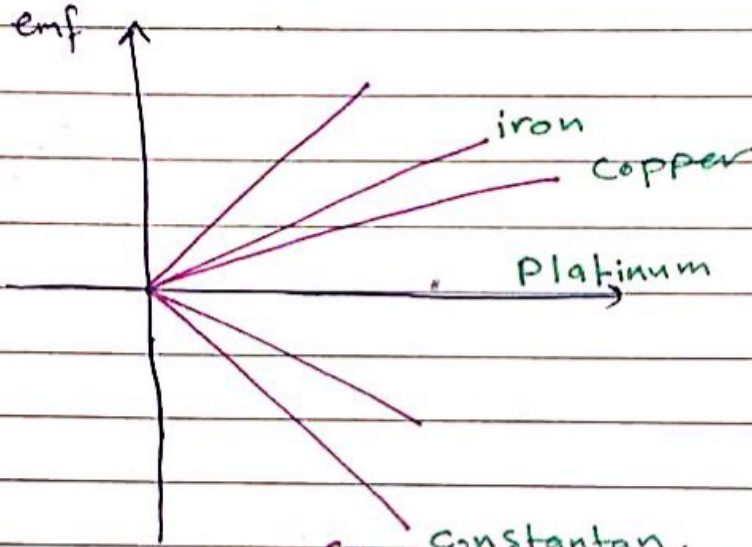 emf
iron
copper
Platinum
constantan.